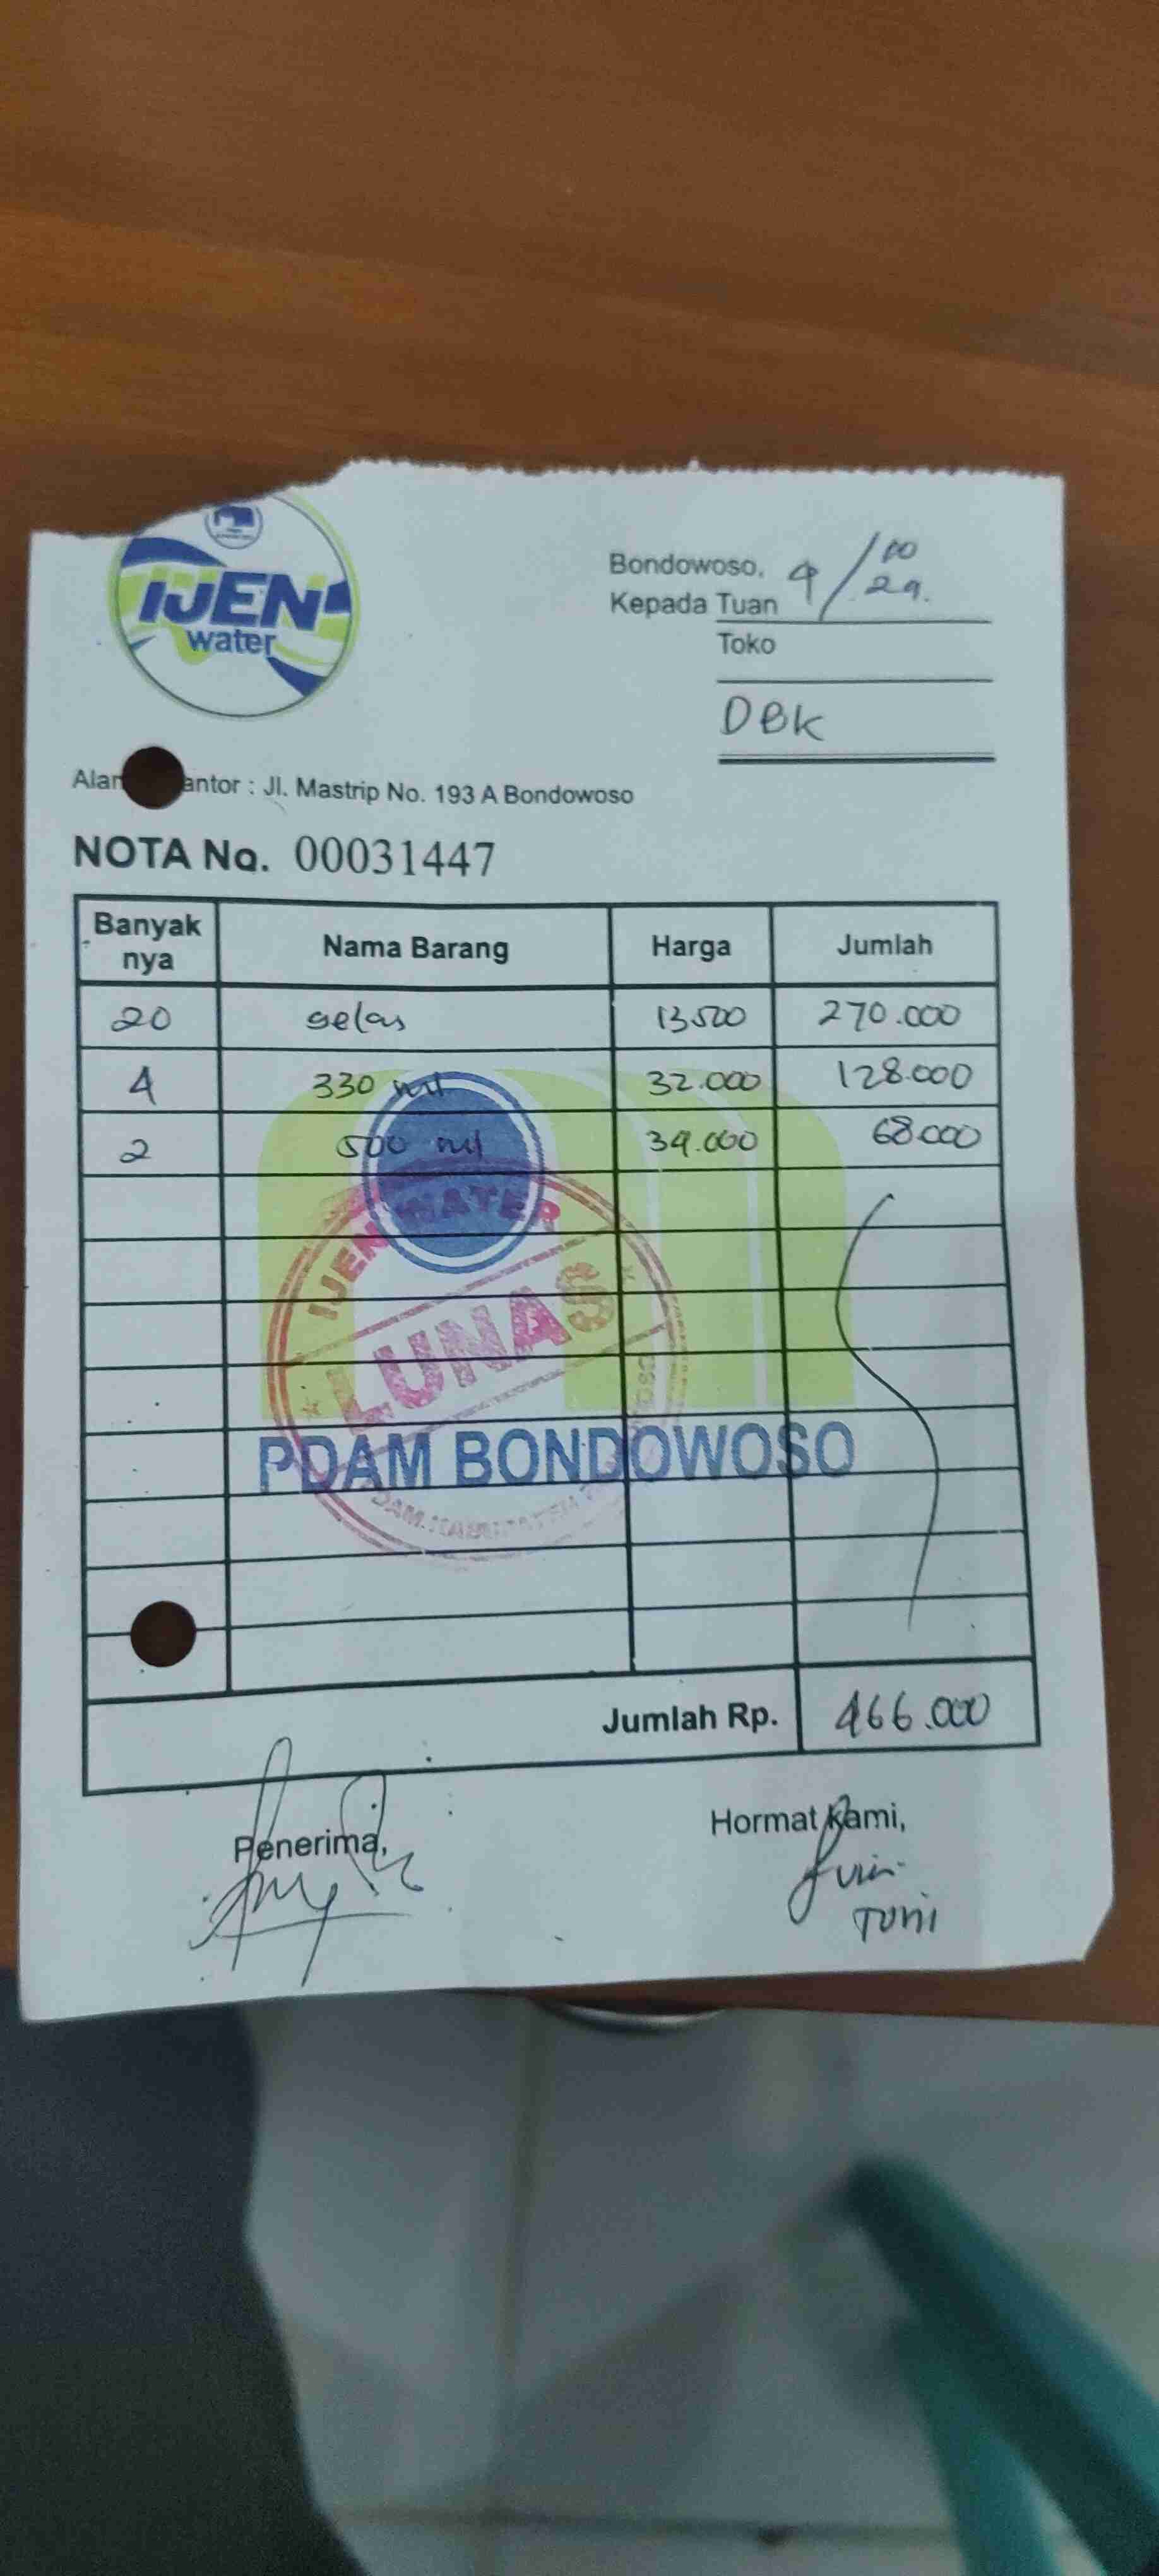 IJEN
water
Bondowoso, 4/10
24.
Kepada Tuan
Toko
DBK
Alam antor : Jl. Mastrip No. 193 A Bondowoso
NOTA No. 00031447
Banyak nya Nama Barang Harga Jumlah
20 gelas 13500 270.000
4 330 ml 32.000 128.000
2 500 ml 34.000 68.000
IJEN WATER
LUNAS
PDAM BONDOWOSO
Jumlah Rp. 466.000
Penerima,
Hormat Kami,